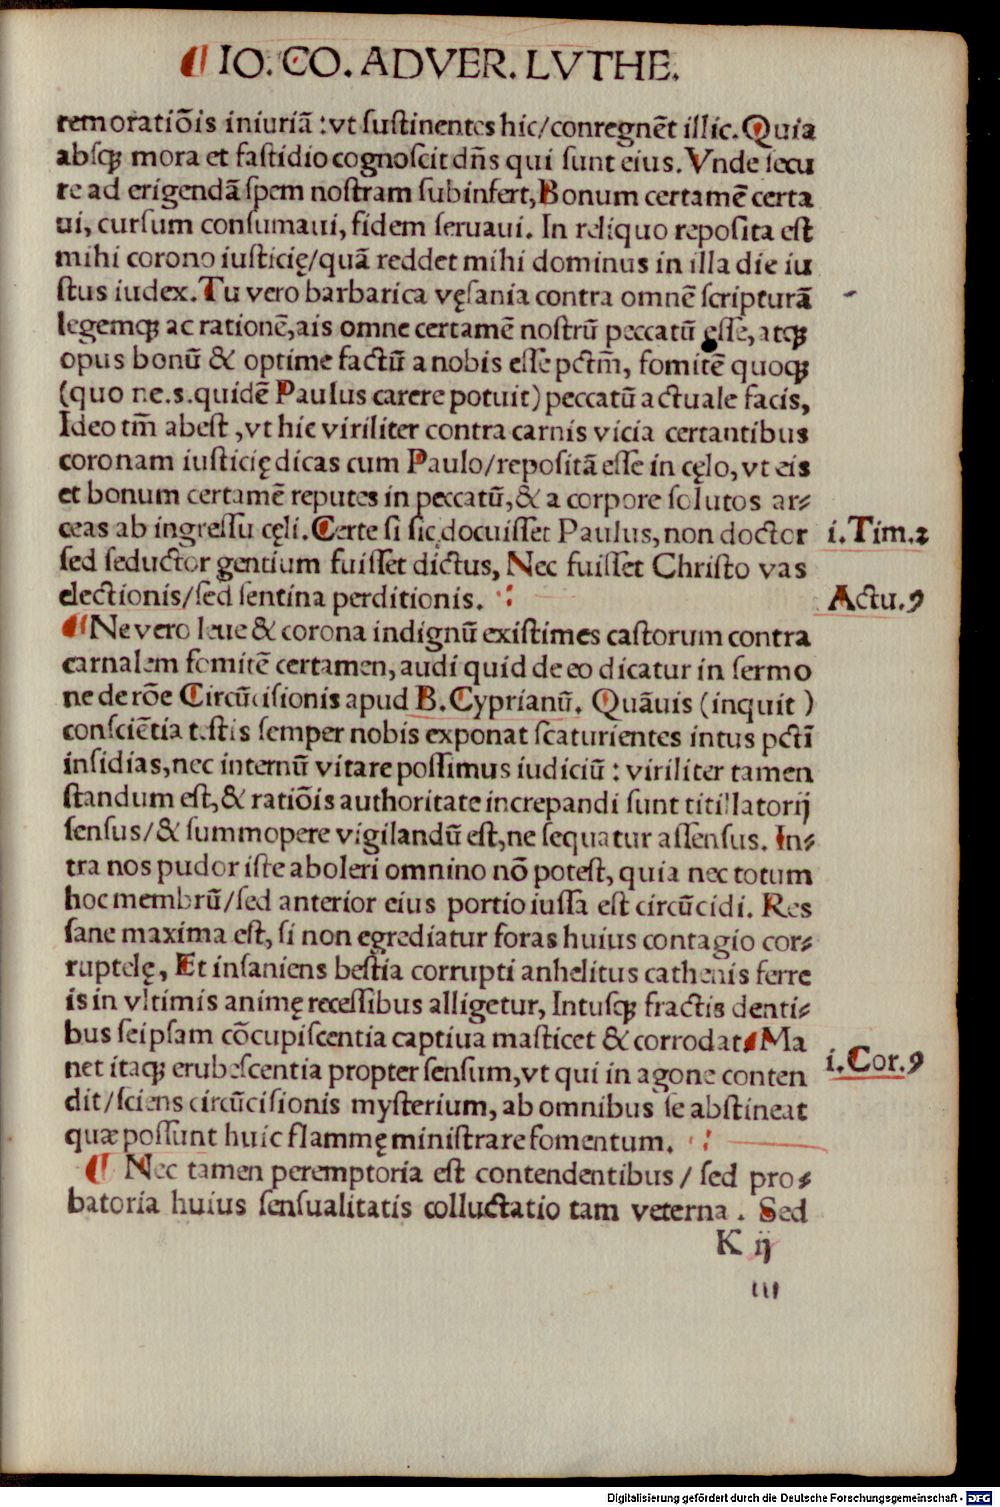 ¶ IO. CO. ADVER. LVTHE.
remoratiõis iniuriã : vt sustinentes hic/conregnẽt illic. Quia
absqꝫ mora et fastidio cognoscit dñs qui sunt eius. Vnde secu
re ad erigendã spem nostram subinfert, Bonum certamẽ certa
ui, cursum consumaui, fidem seruaui. In reliquo reposita est
mihi corono iusticię/quã reddet mihi dominus in illa die iu
stus iudex. Tu vero barbarica vęsania contra omnẽ scripturã
legemqꝫ ac rationẽ, ais omne certamẽ nostrũ peccatũ esse, atqꝫ
opus bonũ & optime factũ a nobis esse pctm̃, fomitẽ quoqꝫ
(quo n.e.s. quidẽ Paulus carere potuit) peccatũ actuale facis,
Ideo tm̃ abest, vt hic viriliter contra carnis vicia certantibus
coronam iusticię dicas cum Paulo/repositã esse in cęlo, vt eis
et bonum certamẽ reputes in peccatũ, & a corpore solutos ar⸗
ceas ab ingressu cęli. Certe si sic docuisset Paulus, non doctor
i. Tim. 2
sed seductor gentium fuisset dictus, Nec fuisset Christo vas
electionis/sed sentina perditionis.
Actu. 9
¶ Ne vero leue & corona indignũ existimes castorum contra
carnalem fomitẽ certamen, audi quid de eo dicatur in sermo
ne de rõe Circũcisionis apud B. Cyprianũ. Quãuis (inquit)
consciẽtia testis semper nobis exponat scaturientes intus pctĩ
insidias, nec internũ vitare possimus iudiciũ : viriliter tamen
standum est, & ratiõis authoritate increpandi sunt titillatorij
sensus/& summopere vigilandũ est, ne sequatur assensus. In⸗
tra nos pudor iste aboleri omnino nõ potest, quia nec totum
hoc membrũ/sed anterior eius portio iussa est circũcidi. Res
sane maxima est, si non egrediatur foras huius contagio cor⸗
ruptelę, Et insaniens bestia corrupti anhelitus cathenis ferre
is in vltimis animę recessibus alligetur, Intusqꝫ fractis denti⸗
bus seipsam cõcupiscentia captiua masticet & corrodat. Ma
net itaqꝫ erubescentia propter sensum, vt qui in agone conten
i. Cor. 9
dit/sciens circũcisionis mysterium, ab omnibus se abstineat
quæ possunt huic flammę ministrare fomentum.
¶ Nec tamen peremptoria est contendentibus/ sed pro⸗
batoria huius sensualitatis colluctatio tam veterna. Sed
K ij
iii
Digitalisierung gefördert durch die Deutsche Forschungsgemeinschaft - DFG